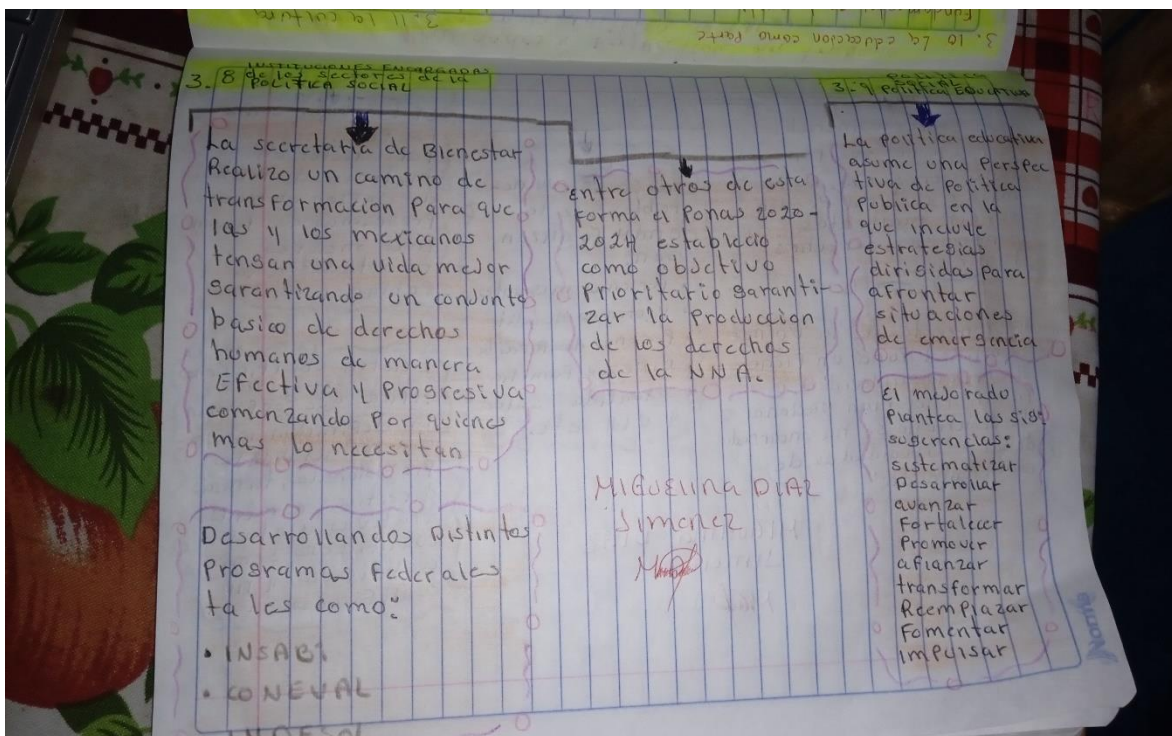 3.10 La educacion como parte
Fundamental
3.11 La cultura
3.8 INSTITUCIONES ENCARGADAS
de los sectores de la
POLITICA SOCIAL
La secretaria de Bienestar
Realizo un camino de
transformacion Para que
las y los mexicanos
tengan una vida mejor
garantizando un conjunto
basico de derechos
humanos de manera
Efectiva y Progresiva
comenzando Por quienes
mas lo necesitan
Desarrollandos Distintos
Programas Federales
tales como:
• INSABI
• CONEVAL
entre otros de esta
forma el Ponas 2020-
2024 establecio
como objetivo
Prioritario garanti-
zar la Producción
de los derechos
de la NNA.
MIGUELINA DIAZ
Jimenez
3.9 POLITICA
SOCIAL
Politica EDUCATIVA
La politica educativa
asume una Perspec
tiva de Politica
Publica en la
que incluye
estrategias
dirigidas para
afrontar
situaciones
de emergencia
El mejorado
Plantea las sig:
sugerencias:
sistematizar
Desarrollar
avanzar
Fortalecer
Promover
afianzar
transformar
Reemplazar
Fomentar
impulsar
Norma